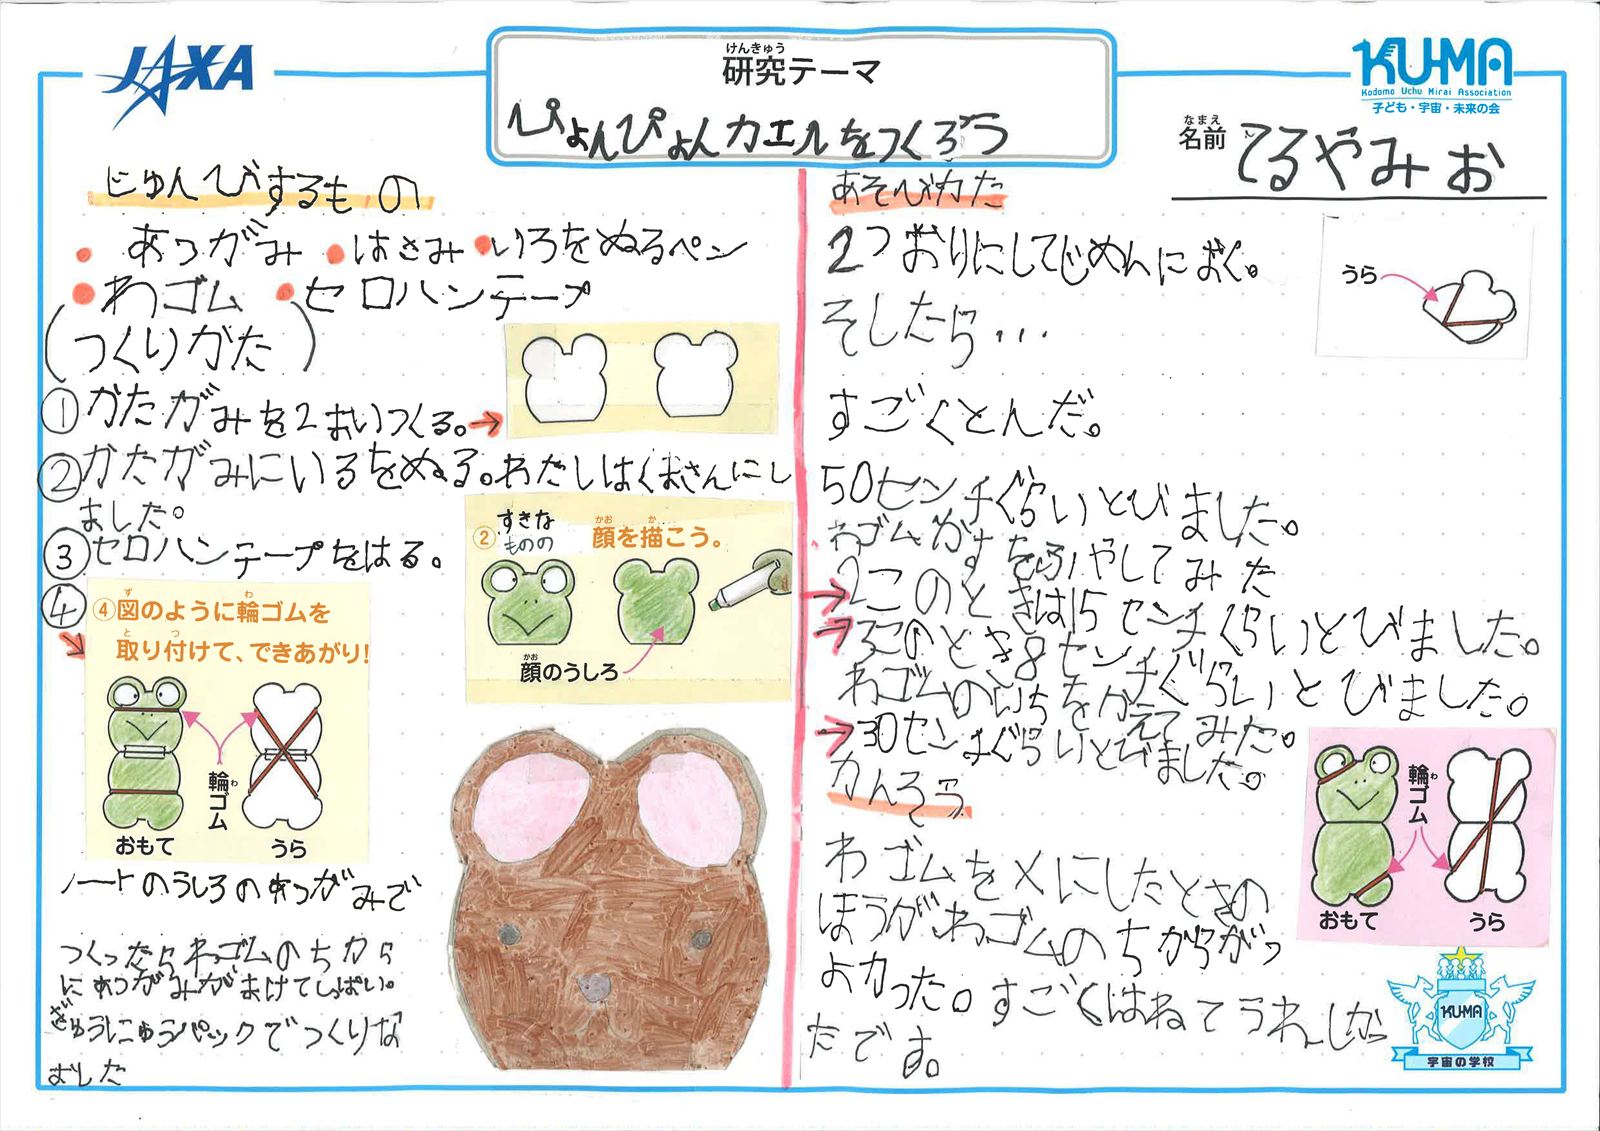 JAXA
けんきゅう
研究テーマ
ぴょんぴょんカエルをつくろう
KU-MA
Kodomo Uchu Mirai Association
子ども・宇宙・未来の会
なまえ
名前 てるやみお
じゅんびするもの
・あつがみ ・はさみ ・いろをぬるペン
・わゴム ・セロハンテープ
(つくりかた)
①かたがみを2まいつくる。→
②かたがみにいろをぬる。わたしはくまさんにし
ました。
③セロハンテープをはる。
④
④図のように輪ゴムを
ず わ
取り付けて、できあがり!
と つ
輪ゴム
わ
おもて
うら
② すきな
ものの
顔を描こう。
かお か
顔のうしろ
かお
ノートのうしろのあつがみで
つくったらわゴムのちから
にあつがみがまけてしっぱい。
ぎゅうにゅうパックでつくりな
おした
あそびかた
2つおりにしてじめんにおく。
うら
そしたら...
すごくとんだ。
50センチぐらいとびました。
わゴムかずをふやしてみた
→2このときは15センチくらいとびました。
→3このとき8センチぐらいとびました。
わゴムのいちをかえてみた。
→30センチぐらいとびました。
かんそう
わゴムを×にしたときの
ほうがわゴムのちからがつ
よかった。すごくはねてうれしかっ
たです。
輪ゴム
わ
おもて
うら
KU-MA
宇宙の学校